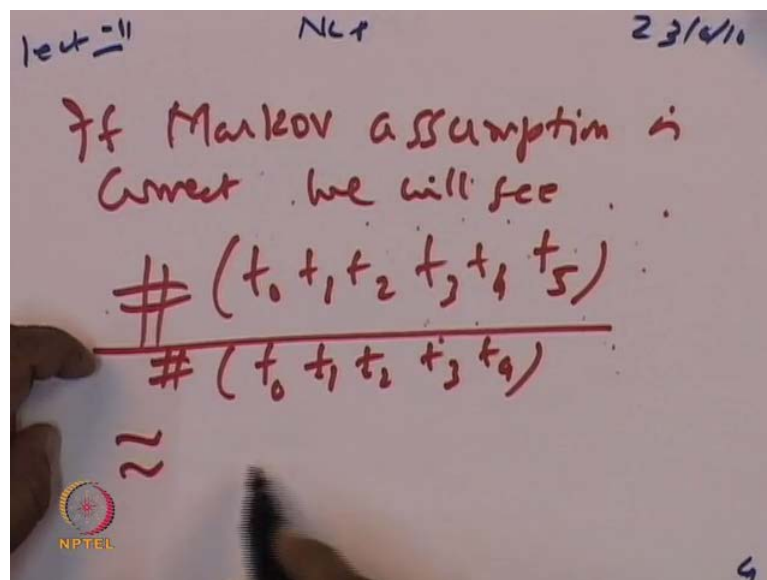 lect-11 NLP 23/8/10
If Markov assumption is
correct we will see . .
# (t₀ t₁ t₂ t₃ t₄ t₅)
# (t₀ t₁ t₂ t₃ t₄)
≈
NPTEL